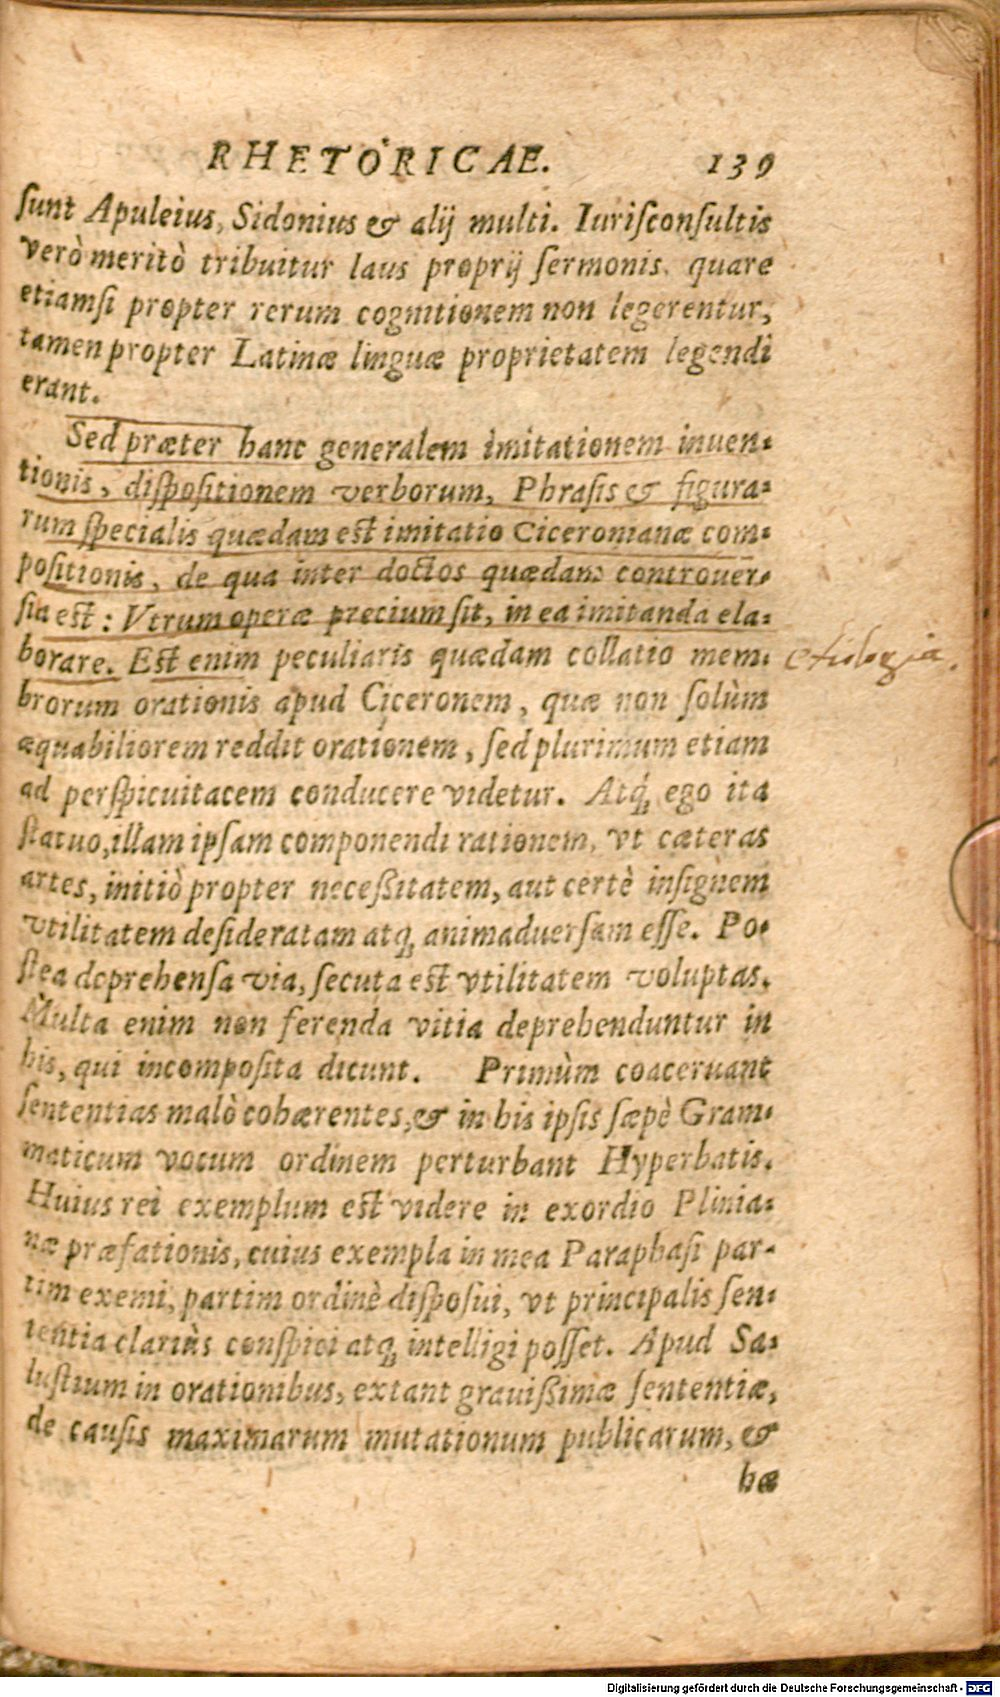 RHETORICAE. 139
ſunt Apuleius, Sidonius & alij multi. Iuriſconſultis
verò meritò tribuitur laus proprij ſermonis. quare
etiamſi propter rerum cognitionem non legerentur,
tamen propter Latinæ linguæ proprietatem legendi
erant.
Sed præter hanc generalem imitationem inuen-
tionis, diſpoſitionem verborum, Phraſis & figura-
rum ſpecialis quædam eſt imitatio Ciceronianæ com-
poſitionis, de qua inter doctos quædam controuer-
ſia eſt: Vtrum operæ precium ſit, in ea imitanda ela-
borare. Eſt enim peculiaris quædam collatio mem-
etiologia.
brorum orationis apud Ciceronem, quæ non ſolùm
æquabiliorem reddit orationem, ſed plurimum etiam
ad perſpicuitacem conducere videtur. Atq́; ego ita
ſtatuo, illam ipſam componendi rationem, vt cæteras
artes, initiò propter neceßitatem, aut certè inſignem
vtilitatem deſideratam atq; animaduerſam eſſe. Po-
ſtea deprehenſa via, ſecuta eſt vtilitatem voluptas.
Multa enim non ferenda vitia deprehenduntur in
his, qui incompoſita dicunt. Primùm coaceruant
ſententias malò cohærentes, & in his ipſis ſæpè Gram-
maticum vocum ordinem perturbant Hyperbatis.
Huius rei exemplum eſt videre in exordio Plinia-
næ præfationis, cuius exempla in mea Paraphaſi par-
tim exemi, partim ordinè diſpoſui, vt principalis ſen-
tentia clariùs conſpici atq; intelligi poſſet. Apud Sa-
luſtium in orationibus, extant grauißimæ ſententiæ,
de cauſis maximarum mutationum publicarum, &
hæ
Digitalisierung gefördert durch die Deutsche Forschungsgemeinschaft - DFG